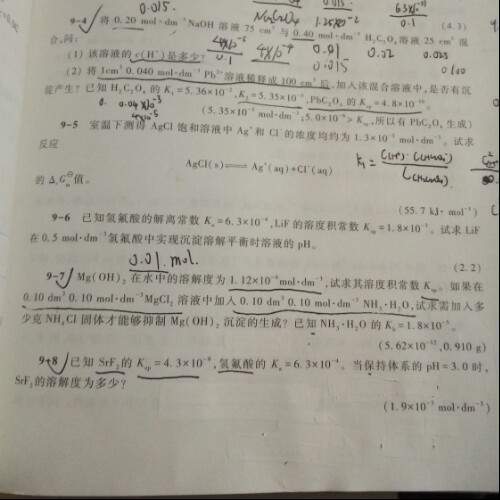 0.015.
0.015.
63×10
NaC₂O₄ 1.25×10⁻²
0.1
(4.3)
9-4 将 0.20 mol·dm⁻³NaOH 溶液 75 cm³ 与 0.40 mol·dm⁻³ H₂C₂O₄ 溶液 25 cm³ 混
合,问:
0.1
0.01
0.02
0.025
(1) 该溶液的 c(H⁺)是多少?
0.015
0.100
(2) 将 1cm³ 0.040 mol·dm⁻³ Pb²⁺溶液稀释成 100 cm³ 后,加入该混合溶液中,是否有沉
淀产生? 已知 H₂C₂O₄ 的 K₁=5.36×10⁻²,K₂=5.35×10⁻⁵,PbC₂O₄ 的 Ksp=4.8×10⁻¹⁰。
(5.35×10⁻⁵ mol·dm⁻³;5.0×10⁻⁶>Ksp,所以有 PbC₂O₄ 生成)
9-5 室温下测得 AgCl 饱和溶液中 Ag⁺和 Cl⁻的浓度均约为 1.3×10⁻⁵ mol·dm⁻³。试求
反应
AgCl(s)⇌Ag⁺(aq)+Cl⁻(aq)
的 ΔrGm⊖值。
(55.7 kJ·mol⁻¹)
9-6 已知氢氟酸的解离常数 Ka=6.3×10⁻⁴,LiF 的溶度积常数 Ksp=1.8×10⁻³。试求 LiF
在 0.5 mol·dm⁻³氢氟酸中实现沉淀溶解平衡时溶液的 pH。
(2.2)
0.01 mol.
9-7 Mg(OH)₂ 在水中的溶解度为 1.12×10⁻⁴mol·dm⁻³,试求其溶度积常数 Ksp。如果在
0.10 dm³ 0.10 mol·dm⁻³MgCl₂ 溶液中加入 0.10 dm³ 0.10 mol·dm⁻³ NH₃·H₂O,试求需加入多
少克 NH₄Cl 固体才能够抑制 Mg(OH)₂ 沉淀的生成? 已知 NH₃·H₂O 的 Kb=1.8×10⁻⁵。
(5.62×10⁻¹²,0.910 g)
9-8 已知 SrF₂ 的 Ksp=4.3×10⁻⁹,氢氟酸的 Ka=6.3×10⁻⁴。当保持体系的 pH=3.0 时,
SrF₂的溶解度为多少?
(1.9×10⁻³ mol·dm⁻³)